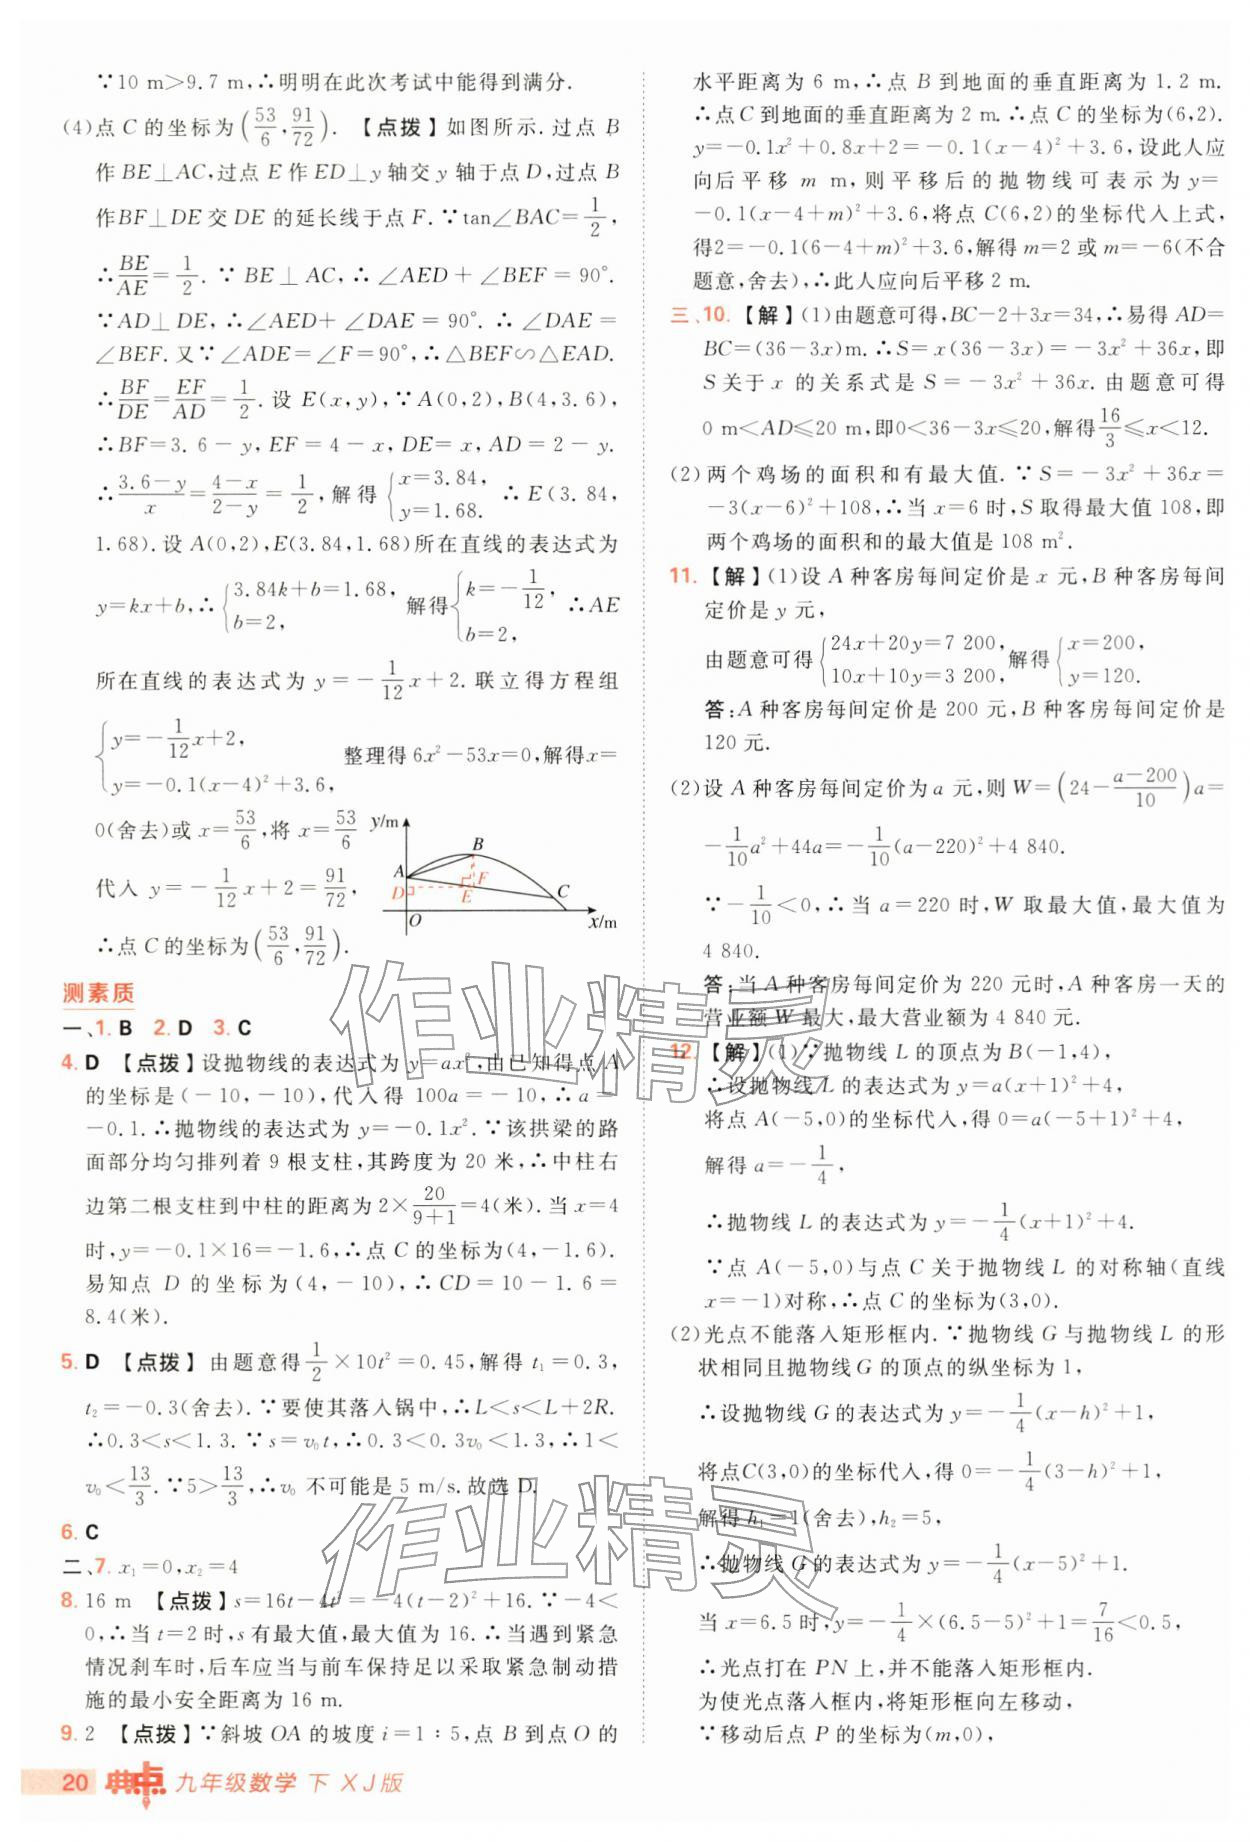 ∵10 m>9.7 m,∴明明在此次考试中能得到满分.
(4)点 C 的坐标为(53/6,91/72). 【点拨】如图所示.过点 B
作 BE⊥AC,过点 E 作 ED⊥y 轴交 y 轴于点 D,过点 B
作BF⊥DE 交 DE 的延长线于点 F.∵tan∠BAC=1/2,
∴BE/AE=1/2. ∵ BE⊥AC,∴∠AED+∠BEF=90°.
∵AD⊥DE,∴∠AED+∠DAE=90°.∴∠DAE=
∠BEF.又∵∠ADE=∠F=90°,∴△BEF∽△EAD.
∴BF/DE=EF/AD=1/2.设 E(x,y),∵A(0,2),B(4,3.6),
∴BF=3.6-y,EF=4-x,DE=x,AD=2-y.
∴(3.6-y)/x=(4-x)/(2-y)=1/2,解得{x=3.84, y=1.68. ∴E(3.84,
1.68).设 A(0,2),E(3.84,1.68)所在直线的表达式为
y=kx+b,∴{3.84k+b=1.68, b=2, 解得{k=-1/12, b=2, ∴AE
所在直线的表达式为 y=-1/12x+2.联立得方程组
{y=-1/12x+2, y=-0.1(x-4)²+3.6, 整理得6x²-53x=0,解得x=
0(舍去)或 x=53/6,将 x=53/6
代入 y=-1/12x+2=91/72,
∴点 C 的坐标为(53/6,91/72).
y/m
A
B
D
F
E
C
O
x/m
测素质
一、1. B 2. D 3. C
4. D 【点拨】设抛物线的表达式为 y=ax²,由已知得点 A
的坐标是(-10,-10),代入得 100a=-10,∴a=
-0.1.∴抛物线的表达式为 y=-0.1x².∵该拱梁的路
面部分均匀排列着 9 根支柱,其跨度为 20 米,∴中柱右
边第二根支柱到中柱的距离为 2×20/(9+1)=4(米).当 x=4
时,y=-0.1×16=-1.6,∴点 C 的坐标为(4,-1.6).
易知点 D 的坐标为(4,-10),∴CD=10-1.6=
8.4(米).
5. D 【点拨】由题意得1/2×10t²=0.45,解得 t₁=0.3,
t₂=-0.3(舍去).∵要使其落入锅中,∴L<s<L+2R.
∴0.3<s<1.3.∵s=v₀t,∴0.3<0.3v₀<1.3,∴1<
v₀<13/3.∵5>13/3,∴v₀ 不可能是 5 m/s.故选 D.
6. C
二、7. x₁=0,x₂=4
8. 16 m 【点拨】s=16t-4t²=-4(t-2)²+16.∵-4<
0,∴当 t=2 时,s 有最大值,最大值为 16.∴当遇到紧急
情况刹车时,后车应当与前车保持足以采取紧急制动措
施的最小安全距离为 16 m.
9. 2 【点拨】∵斜坡 OA 的坡度 i=1∶5,点 B 到点 O 的
水平距离为 6 m,∴点 B 到地面的垂直距离为 1.2 m.
∴点 C 到地面的垂直距离为 2 m.∴点 C 的坐标为(6,2).
y=-0.1x²+0.8x+2=-0.1(x-4)²+3.6,设此人应
向后平移 m m,则平移后的抛物线可表示为 y=
-0.1(x-4+m)²+3.6,将点 C(6,2)的坐标代入上式,
得2=-0.1(6-4+m)²+3.6,解得 m=2 或 m=-6(不合
题意,舍去),∴此人应向后平移 2 m.
三、10. 【解】(1)由题意可得,BC-2+3x=34,∴易得 AD=
BC=(36-3x)m.∴S=x(36-3x)=-3x²+36x,即
S关于 x 的关系式是 S=-3x²+36x.由题意可得
0 m<AD≤20 m,即0<36-3x≤20,解得16/3≤x<12.
(2)两个鸡场的面积和有最大值.∵S=-3x²+36x=
-3(x-6)²+108,∴当 x=6 时,S 取得最大值 108,即
两个鸡场的面积和的最大值是 108 m².
11. 【解】(1)设 A 种客房每间定价是 x 元,B 种客房每间
定价是 y 元,
由题意可得{24x+20y=7 200, 10x+10y=3 200,解得{x=200, y=120.
答:A 种客房每间定价是 200 元,B 种客房每间定价是
120 元.
(2)设 A 种客房每间定价为 a 元,则 W=(24-(a-200)/10)a=
-1/10a²+44a=-1/10(a-220)²+4 840.
∵-1/10<0,∴当 a=220 时,W 取最大值,最大值为
4 840.
答:当 A 种客房每间定价为 220 元时,A 种客房一天的
营业额 W 最大,最大营业额为 4 840 元.
12. 【解】(1)∵抛物线 L 的顶点为 B(-1,4),
∴设抛物线 L 的表达式为 y=a(x+1)²+4,
将点 A(-5,0)的坐标代入,得 0=a(-5+1)²+4,
解得 a=-1/4,
∴抛物线 L 的表达式为 y=-1/4(x+1)²+4.
∵点 A(-5,0)与点 C 关于抛物线 L 的对称轴(直线
x=-1)对称,∴点 C 的坐标为(3,0).
(2)光点不能落入矩形框内.∵抛物线 G 与抛物线 L 的形
状相同且抛物线 G 的顶点的纵坐标为 1,
∴设抛物线 G 的表达式为 y=-1/4(x-h)²+1,
将点C(3,0)的坐标代入,得 0=-1/4(3-h)²+1,
解得 h₁=1(舍去),h₂=5,
∴抛物线 G 的表达式为 y=-1/4(x-5)²+1,
当 x=6.5 时,y=-1/4×(6.5-5)²+1=7/16<0.5,
∴光点打在 PN 上,并不能落入框内.
为使光点落入框内,将矩形框向左移动,
∵移动后点 P 的坐标为(m,0),
作业精灵
作业精灵
20 典中点 九年级数学 下 XJ版